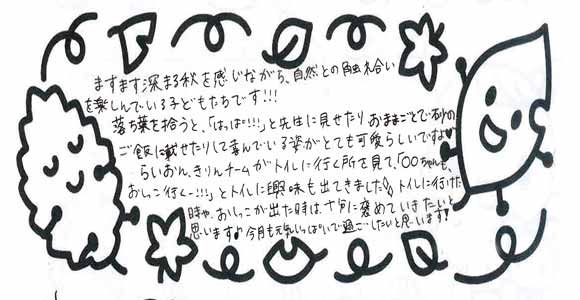 ますます深まる秋を感じながら、自然との触れ合い
を楽しんでいる子どもたちです!!!
落ち葉を拾うと、「はっぱ!!!」と先生に見せたりおままごとで砂の
ご飯に載せたりして喜んでいる姿がとても可愛らしいですよ♥
らいおん、きりんチームがトイレに行く所を見て、「〇〇ちゃんも、
おしっこ行くー!!!」とトイレに興味も出てきました!! トイレに行けた
時や、おしっこが出た時は、十分に褒めていきたいと
思います♪ 今月も元気いっぱいで過ごしたいと思います!